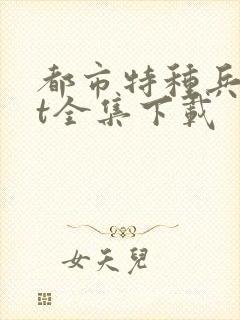 都市特種兵
t全集下載
女天兒